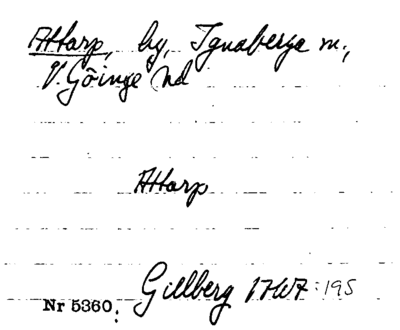 Attarp, by, Ignaberga sn.,
V. Göinge hd
Attarp
Gillberg 1767:195
Nr 5360.